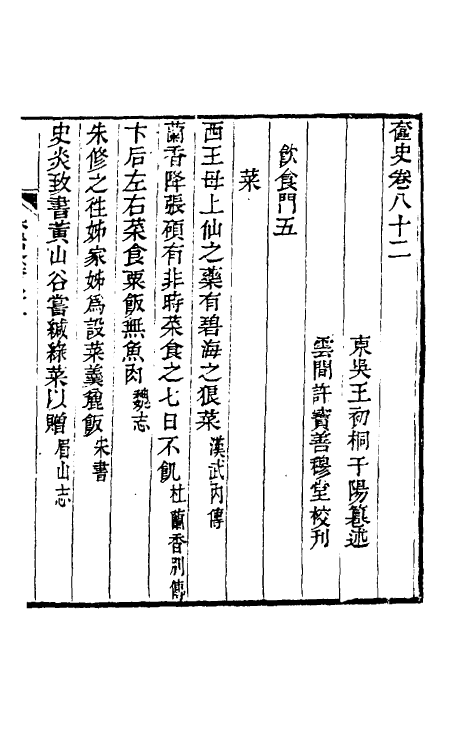 奩史卷八十二
東吳王初桐于陽纂述
雲間許寶善穆堂校刊
飲食門五
菜
西王母上仙之藥有碧海之狼菜漢武內傳
蘭香降張碩有非時菜食之七日不飢杜蘭香別傳
卞后左右菜食粟飯無魚肉魏志
朱修之往姊家姊為設菜羹麤飯宋書
史炎致書黃山谷嘗緘綠菜以贈眉山志